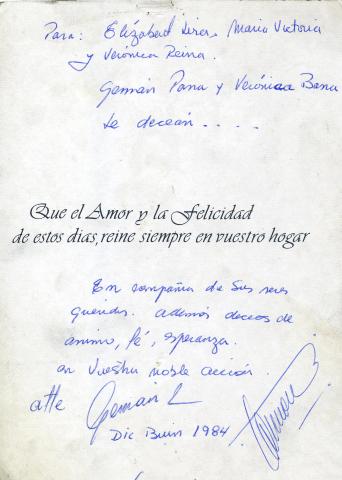 Para: Elizabeth Lira, Maria Victoria
y Verónica Reina.
Germán Parra y Verónica Bana
Le decean . . . .
Que el Amor y la Felicidad
de estos dias, reine siempre en vuestro hogar
En compañia de sus seres
queridos. ademas deceos de
animo, fé, esperanza.
en vuestra noble acción.
atte German L
Dic Buin 1984